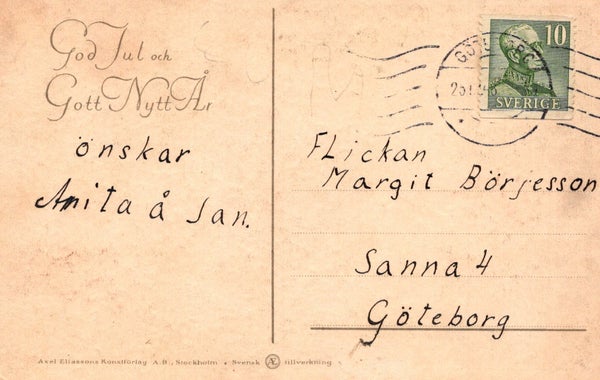 God Jul och
Gott Nytt År
önskar
Anita å Jan.
10
SVERIGE
FLickan
Margit Börjesson
Sanna 4
Göteborg
Axel Eliassons Konstförlag A.B., Stockholm . Svensk Æ tillverkning